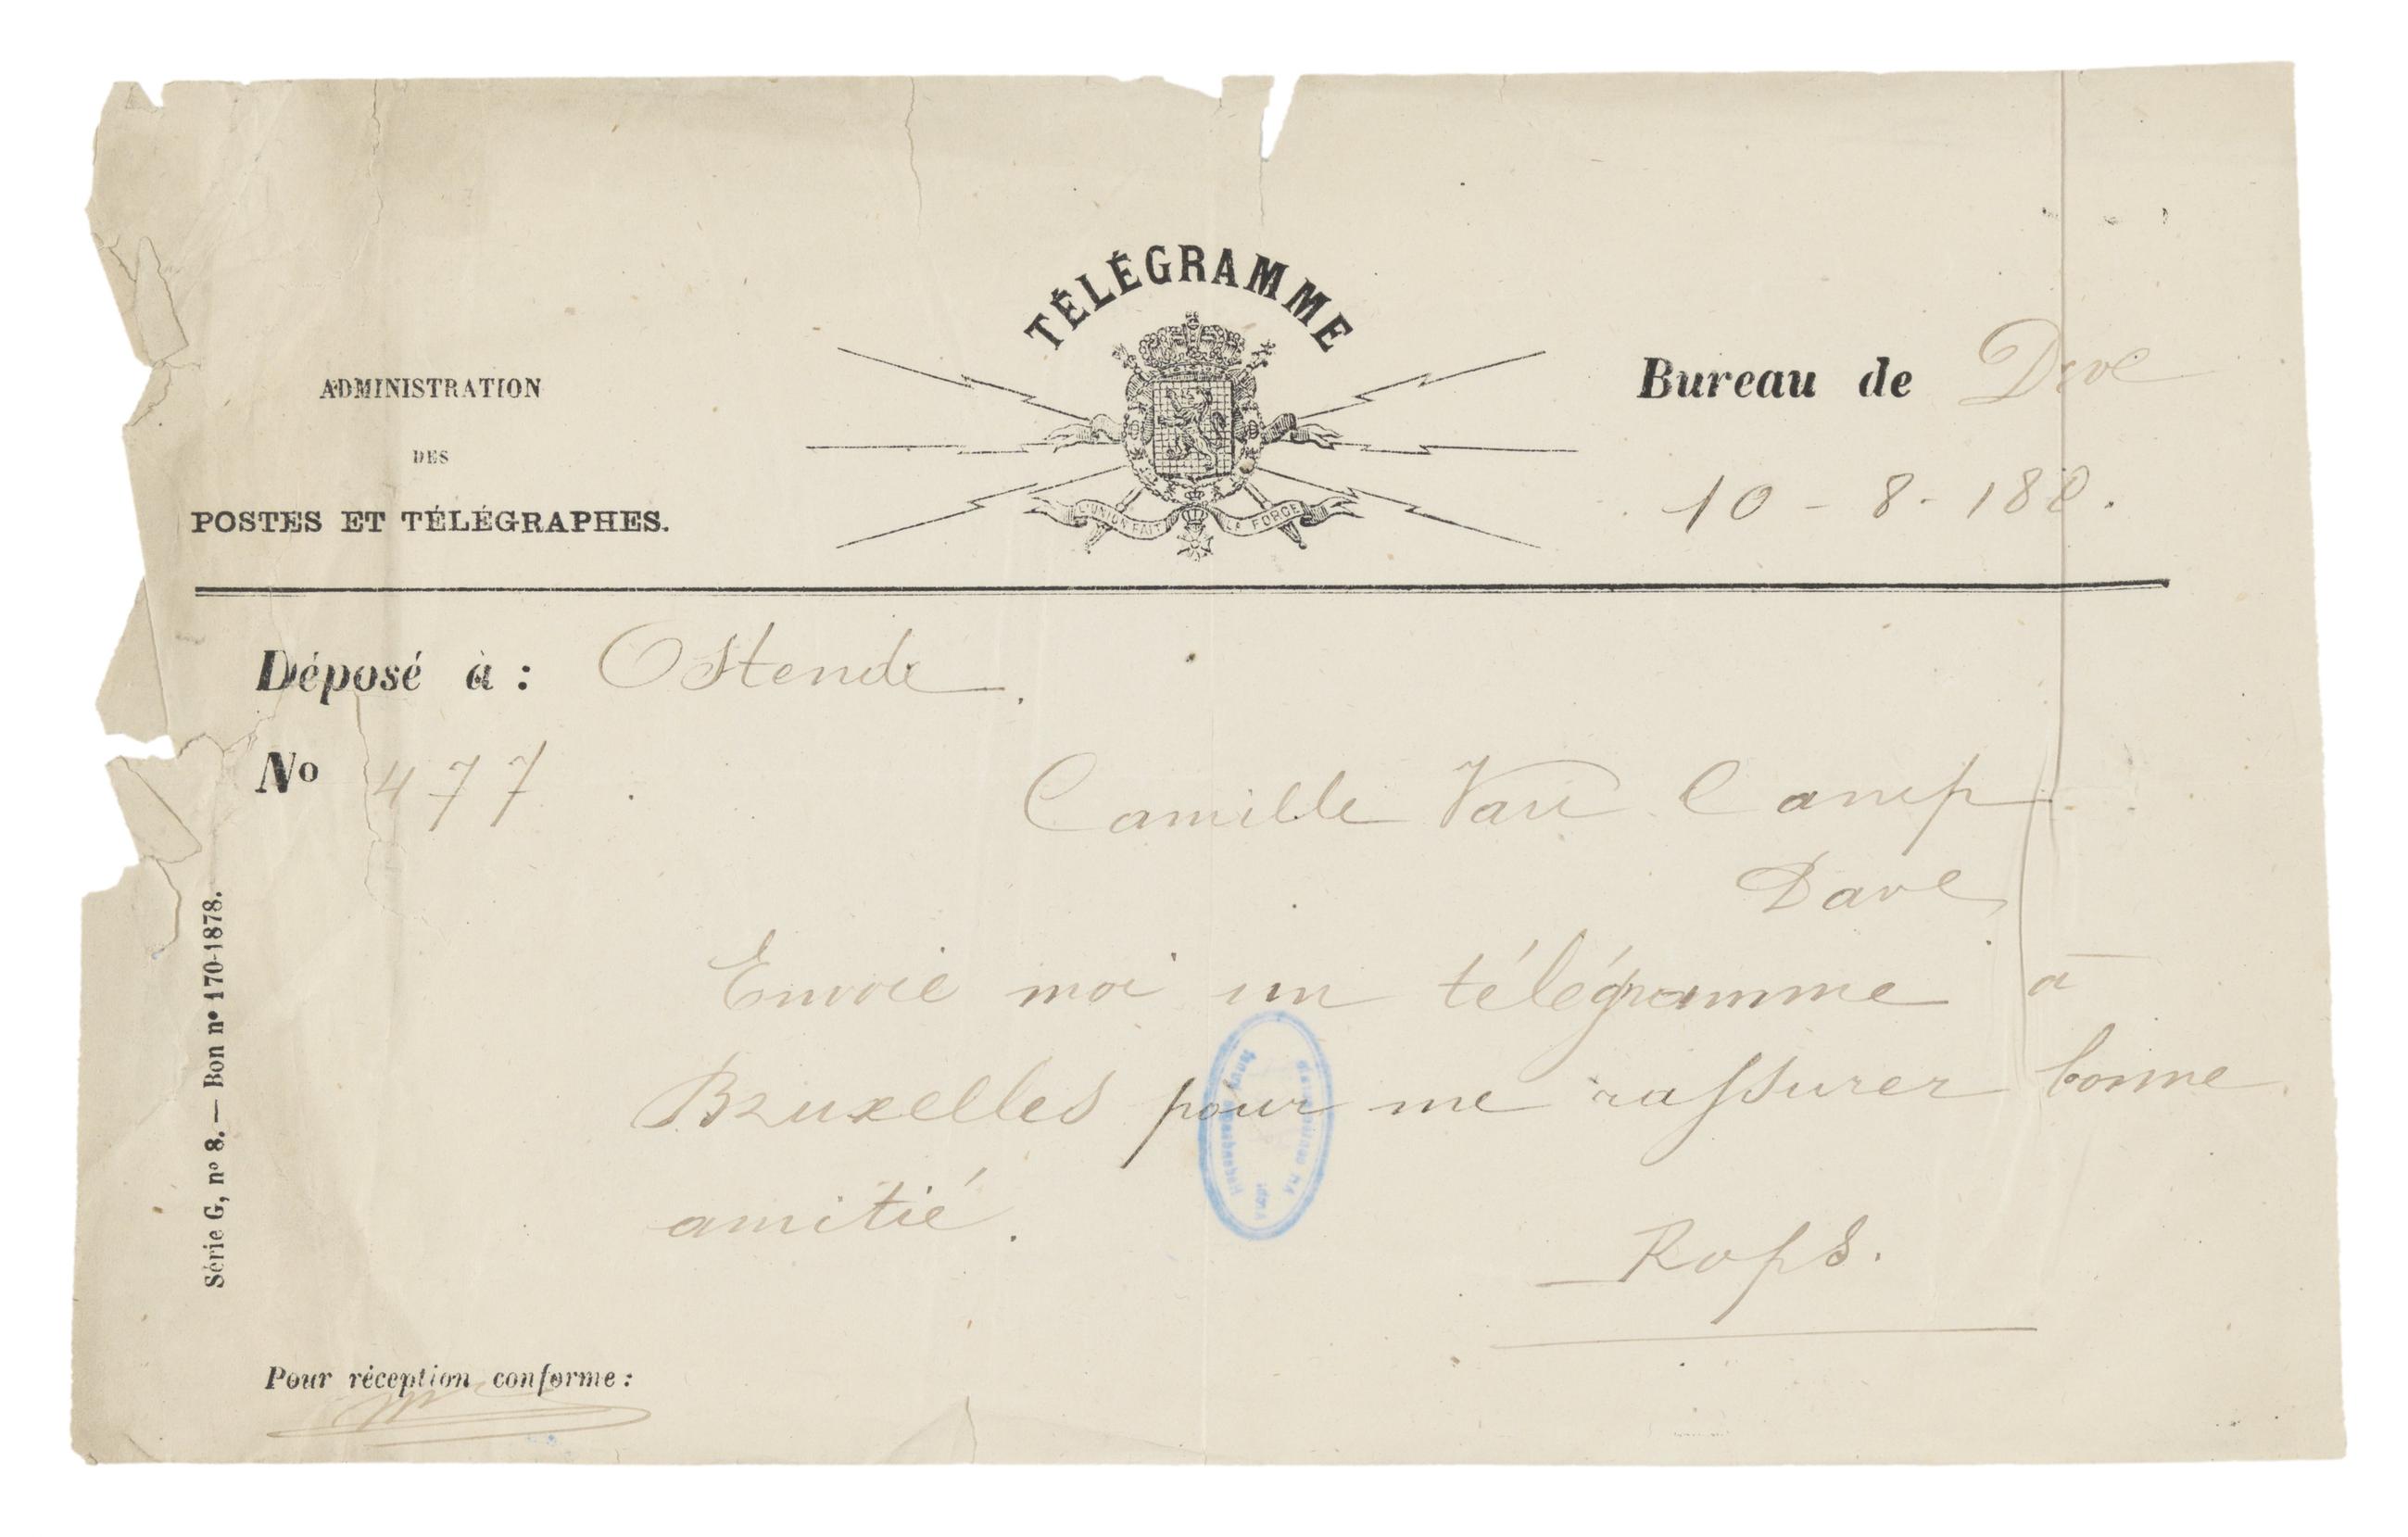 TÉLÉGRAMME
ADMINISTRATION
DES
POSTES ET TÉLÉGRAPHES.
L'UNION FAIT LA FORCE
Bureau de Dave
10 - 8 - 188.
Déposé à : Ostende.
No 477
Camille Van Camp
Dave
Envoie moi un télégramme à
Bruxelles pour me rassurer bonne
amitié.
Rops.
Pour réception conforme :
Série G, nº 8. — Bon nº 170-1878.